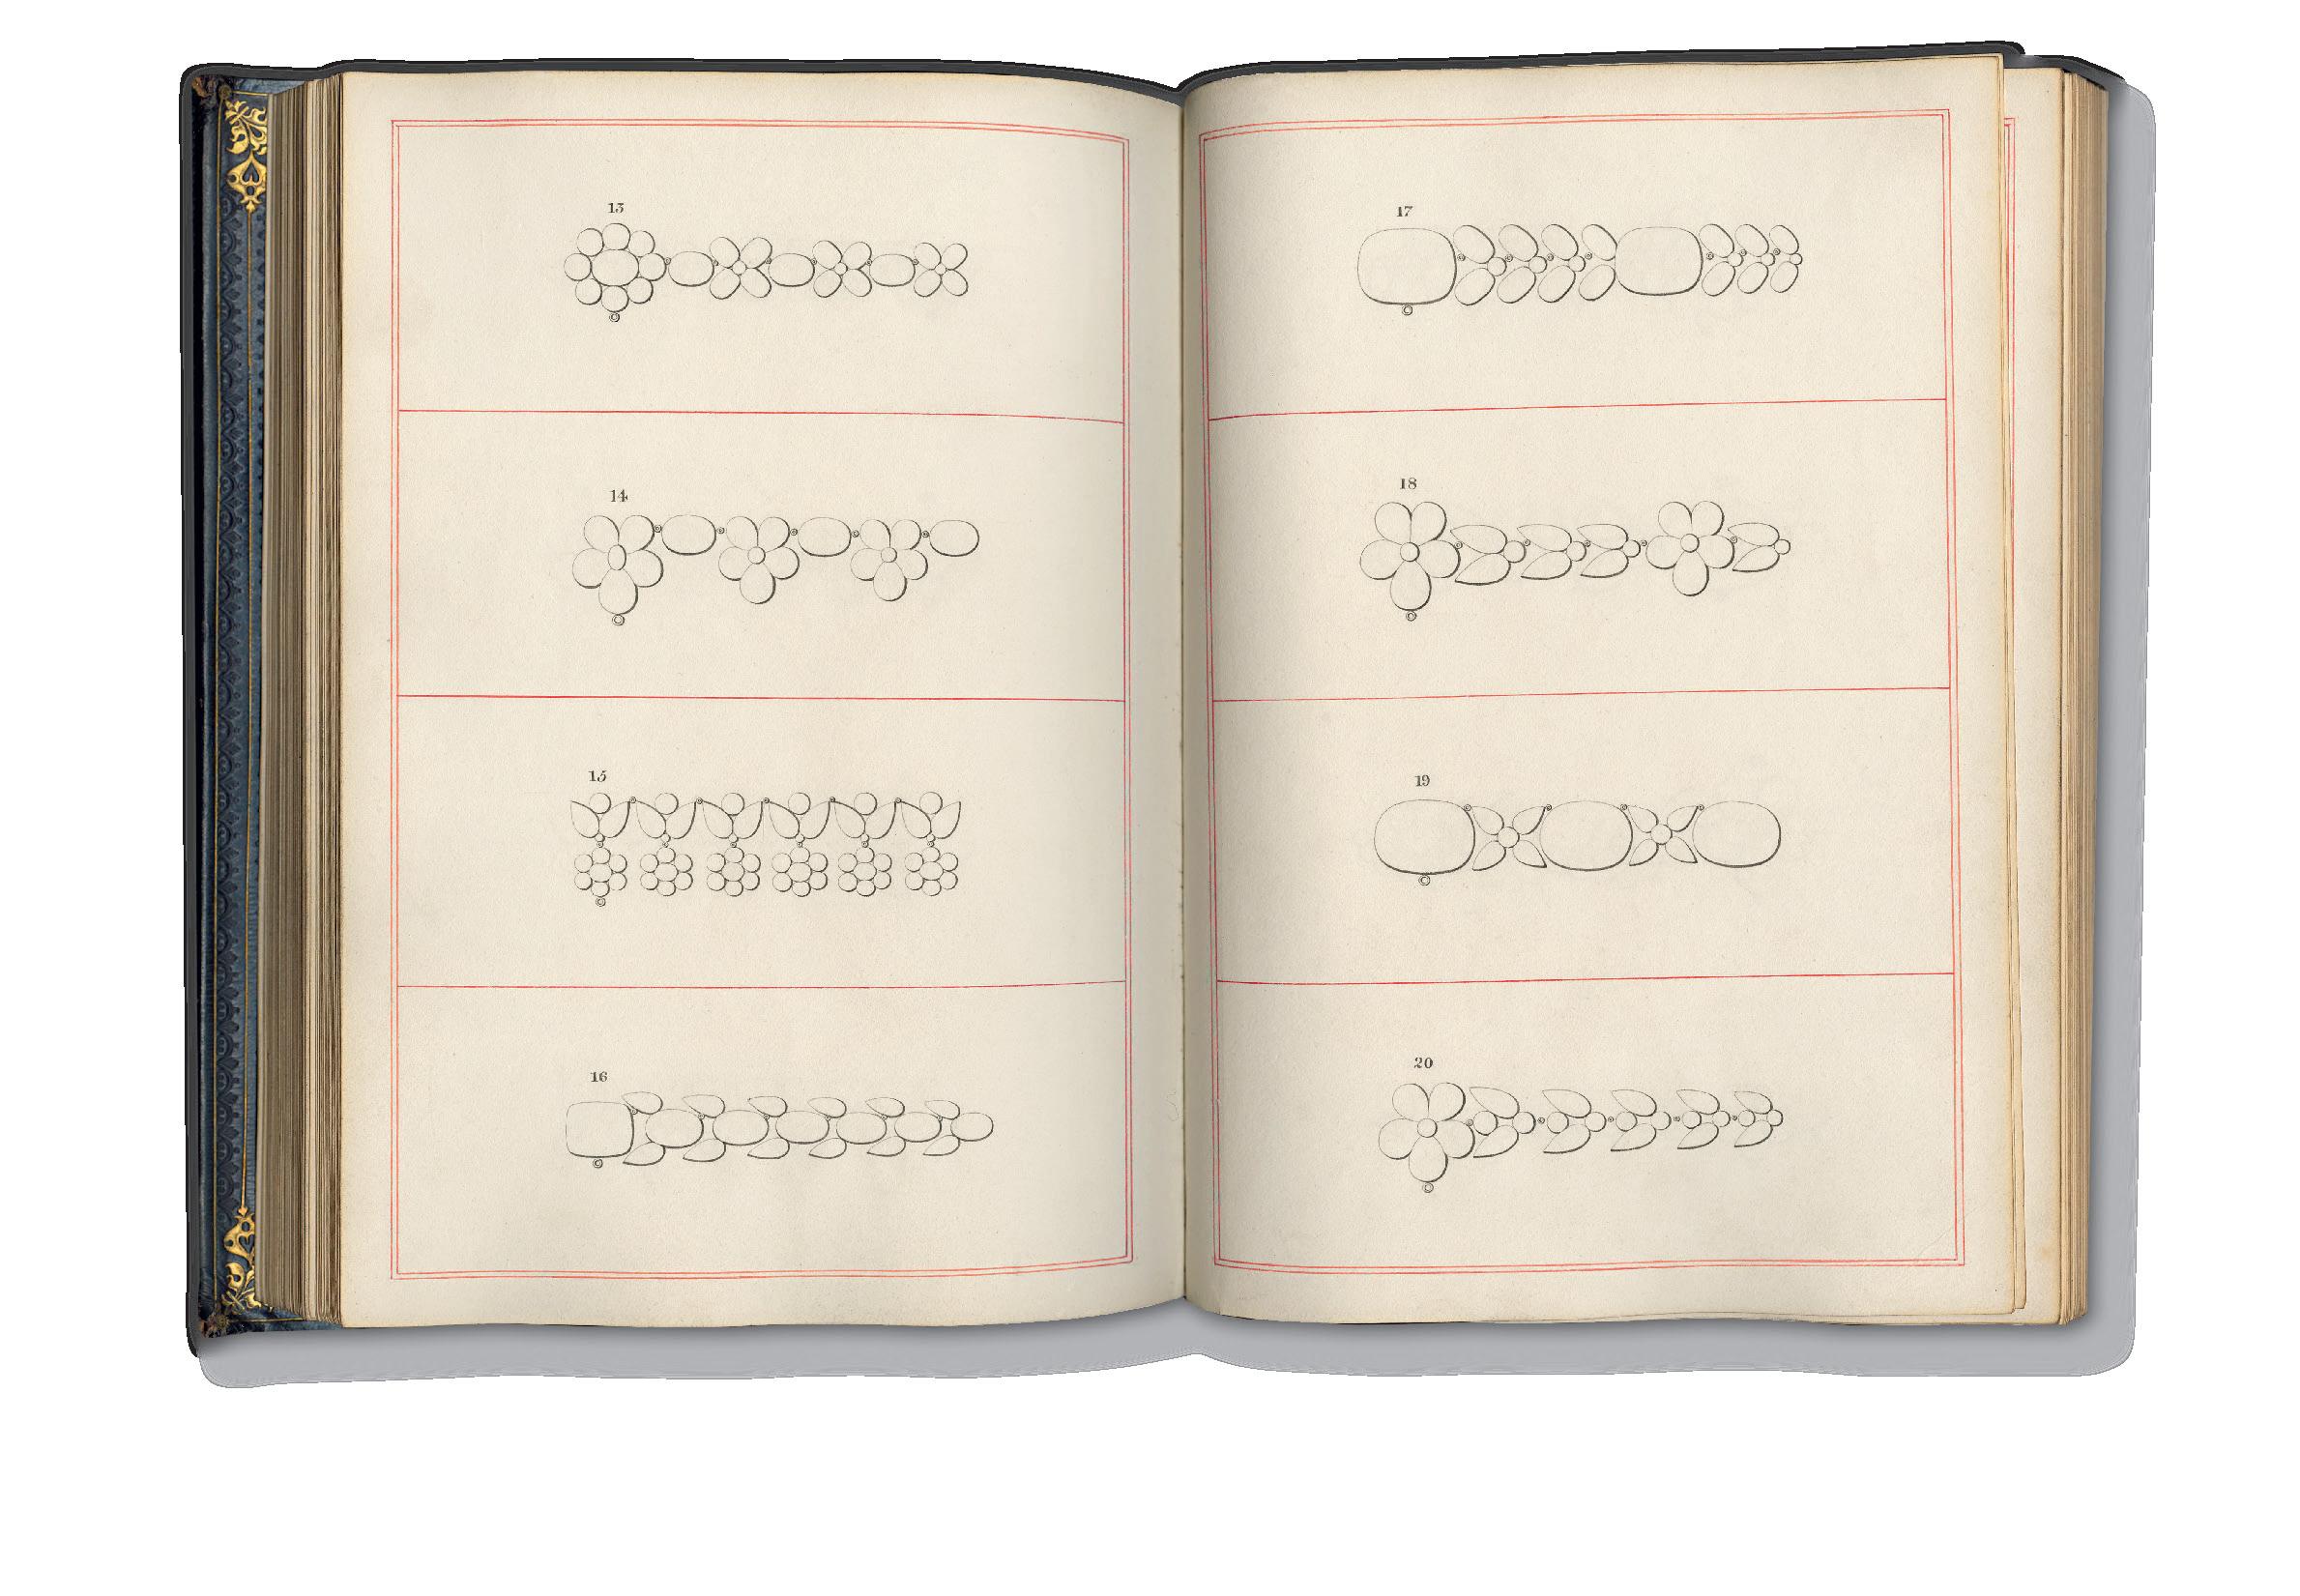 13
14
15
16
17
18
19
20